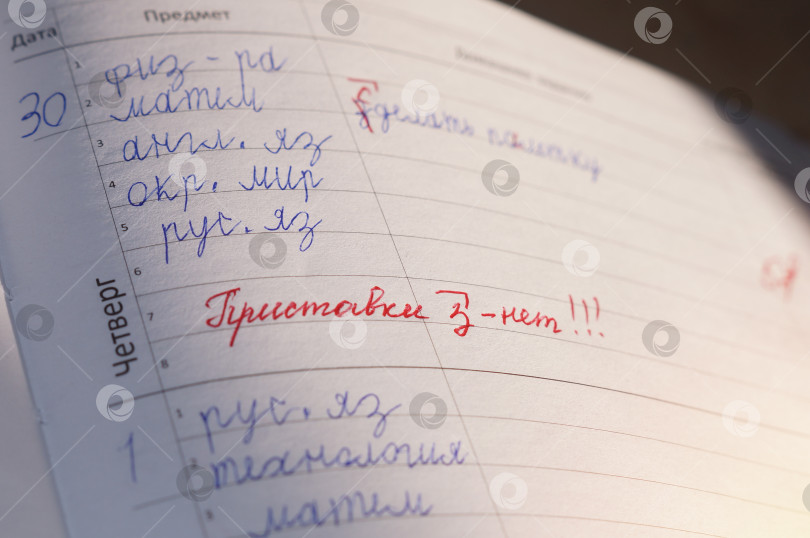 Дата Предмет
30
1 физ-ра
2 матем сделать памятку
3 англ. яз
4 окр. мир
5 рус. яз
6
Четверг
7 Приставки з-нет!!!
8
1
1 рус. яз
2 технология
3 матем